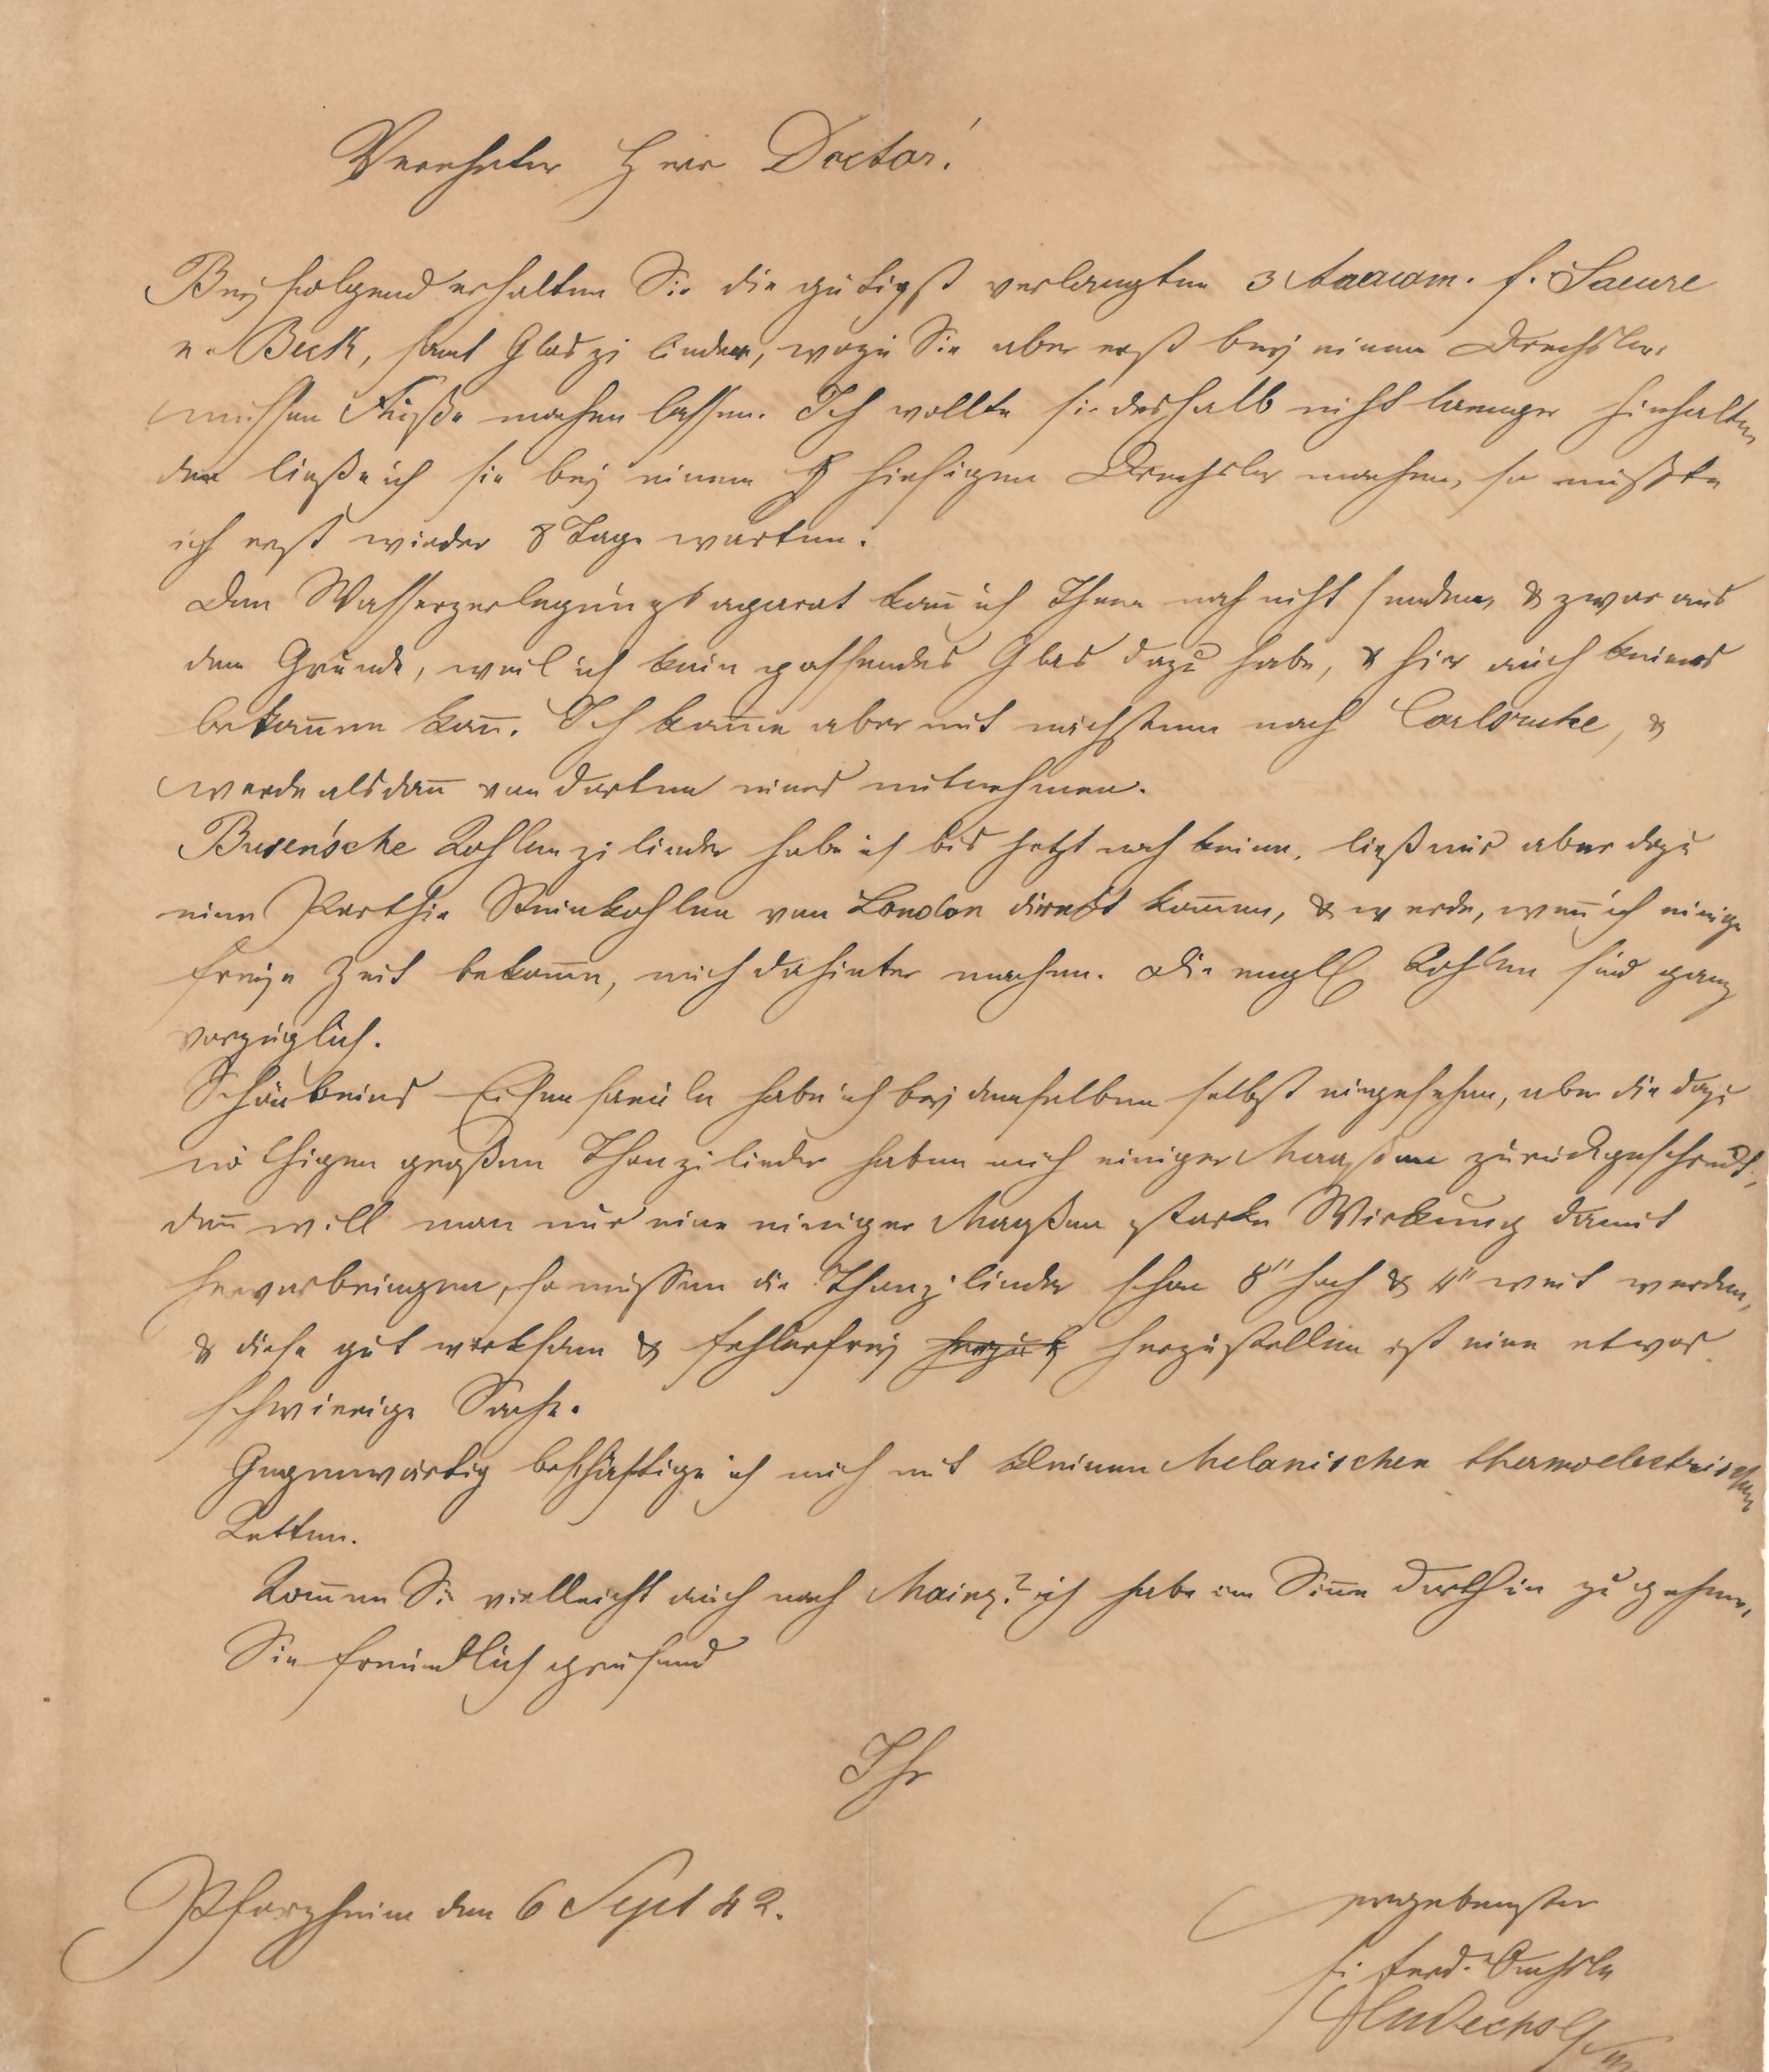 Verehrter Herr Doctor!
Beyfolgend erhalten Sie die gütigst verlangten 3 Araeom. f. Saeure
n. Beck, sant Glaszilinder, wozu Sie aber erst bey einem Drechsler
müssen Füße machen lassen. Ich wollte sie deshalb nicht laenger hinhalten
den ließe ich sie bey einem hiesigen Drechsler machen, so müßte
ich erst wieder 8 Tage warten.
Den Wasserzerlegungsaparat kan̄ ich Ihnen noch nicht senden, & zwar aus
dem Grunde, weil ich kein passendes Glas dazu habe, & hier auch keines
bekom̄en kan̄. Ich kom̄e aber mit nächstem nach Carlsruhe, &
werde alsdan̄ von dorten eines mitnehmen.
Busen'sche Kohlenzilinder habe ich bis jetzt noch keine, ließ mir aber dazu
eine Parthie Steinkohlen von London direkt kom̄en, & werde, wen̄ ich einige
freye Zeit bekom̄e, mich dahinter machen. Die engl. Kohlen sind ganz
vorzüglich.
Schönbeins Eisensaeule habe ich bey demselben selbst eingesehen, aber die dazu
nöthigen großen Thonzilinder haben mich einiger Maaßen zurückgeschreckt,
den̄ will man nur eine einiger Maaßen starke Wirkung damit
hervorbringen, so müssen die Thonzilinder schon 8" hoch & 4" weit werden,
& diese gut wirksam & fehlerfrey herzustellen ist eine etwas
schwierige Sache.
Gegenwärtig beschäftige ich mich mit kleinen Melonischen thermoelectrischen
Ketten.
Kom̄en Sie vielleicht auch nach Mainz? ich habe im Sin̄e dorthin zu gehen,
Sie freundlich grüsend
Ihr
Pforzheim den 6 Sept 42.
ergebenster
Ferd. Oechsle